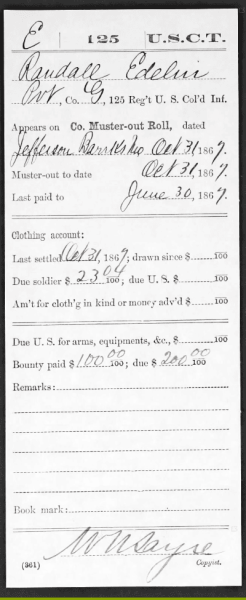 E 125 U.S.C.T.
Randall Edelin
Pvt, Co. G, 125 Reg't U. S. Col'd Inf.
Appears on Co. Muster-out Roll, dated
Jefferson Barracks Mo Oct 31, 1867.
Muster-out to date Oct 31, 1867.
Last paid to June 30, 1867.
Clothing account:
Last settled Oct 31, 1867; drawn since $ 100
Due soldier $ 23 04/100; due U. S. $ 100
Am't for cloth'g in kind or money adv'd $ 100
Due U. S. for arms, equipments, &c., $ 100
Bounty paid $ 100 00/100; due $ 200 00/100
Remarks:
Book mark:
(361) Copyist.